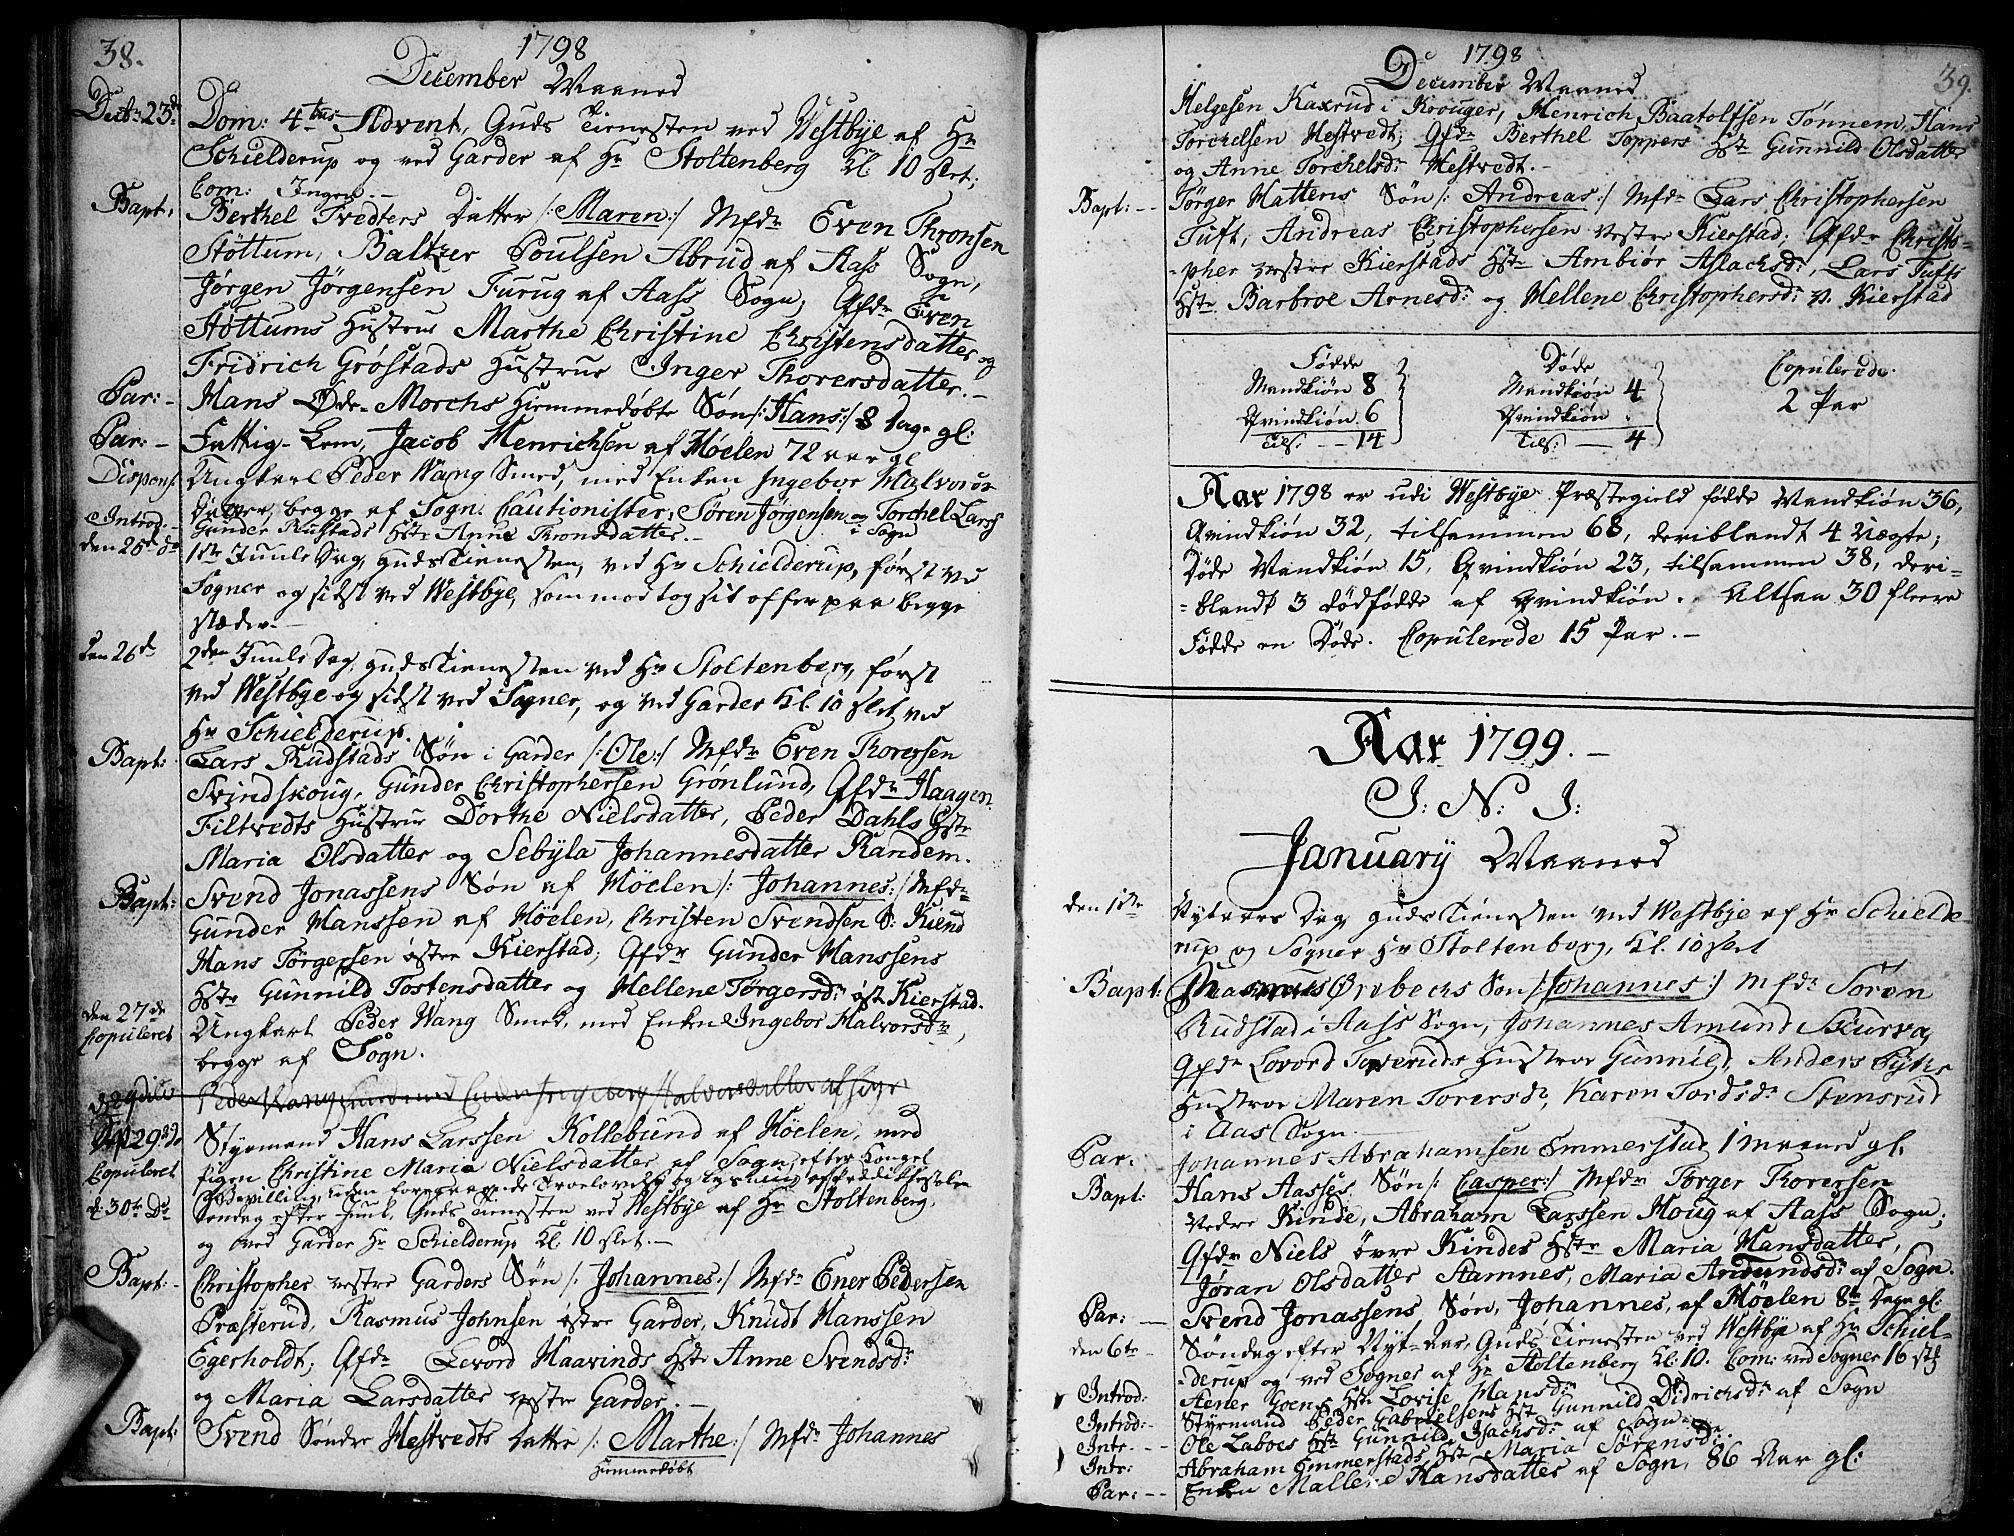 38.
1798
December Maaned
Decbr: 23de Dom: 4tus Advent, Guds Tienesten ved Westbye af Hr
Schielderup og ved Garder af Hr Stoltenberg Kl: 10 slet;
Com: Ingen.—
Bapt: Berthel Tvedters Datter /: Maren :/ Mfdr Even Thronsen
Støttum, Baltzer Poulsen Abrud af Aass Sogn,
Jørgen Jørgensen Furug af Aass Sogn, Qfdr Even
Støttums Hustrue Marthe Christine Christensdatter og
Fridrich Grøstads Hustrue Inger Thorersdatter.—
Par: - Hans Øde-Morchs Hiemmedøbte Søn /: Hans :/ 8 Dage gl:
Par: - Fattig-Lem, Jacob Henrichsen af Høelen 72 aar gl
Dispons. Ungkarl Peder Wang Smed, med Enken Ingebor Halvors
Datter, begge af Sogn. Cautionister, Søren Jørgensen og Torchel Larss
i Sogn
Introd. - Gunder Rustads Hstr Anne Thronsdatter.—
den 25de do 1ste Juule Dag, Guds Tienesten, ved Hr Schielderup, først ved
Sogner og sidst ved Westbye, som modtog sit offer paa begge
stæder.—
den 26de 2den Juule Dag Guds Tienesten ved Hr Stoltenberg, først
ved Westbye og sidst ved Sogner, og ved Garder Kl. 10 slet ved
Hr Schielderup.
Bapt: Lars Rudstads Søn i Garder /: Ole :/ Mfdr Even Thoresen
Svindskoug, Gunder Christophersen Grønlund, Qfdr Haagen
Filtvedts Hustrue Dorthe Nielsdatter, Peder Dahls Hstr
Maria Olsdatter og Sebyla Johannesdatter Randem.
Bapt: Svend Jonassens Søn af Høelen /: Johannes :/ Mfdr
Gunder Hanssen af Høelen, Christen Svendsen
Hans Tørgersen østre Kierstad; Qfdr Gunder Hanssens
Hstr Gunnild Tostensdatter og Hellene Tørgersdr øst: Kierstad.
den 27de Copuleret Ungkarl Peder Wang Smed, med Enken Ingebor Halvorsdr,
begge af Sogn.
Peder Wang Smed med Enken Ingeborg Halvorsdatter af Sogn
den 29de do Copuleret Styrmand Hans Larssen Kollebund af Høelen, med
Pigen Christine Maria Nielsdatter af Sogn, efter Kongel
Bevilling, uden foregaaende Troelovelse og Lysning af Prædikestolen
d: 30te Do Søndag efter Juul, Guds Tienesten ved Westbye af Hr Stoltenberg,
og ved Garder Hr Schielderup Kl. 10 slet.—
Bapt: - Christopher vestre Garders Søn /: Johannes :/ Mfdr Ener Pedersen
Præsterud, Rasmus Johnsen østre Garder, Knudt Hanssen
Egerholdt; Qfdr Levord Haavinds Hstr Anne Svendsdr
og Maria Larsdatter vestre Garder.—
Bapt: Svend Søndre Hestvedts Datter /: Marthe :/ Mfdr Johannes
Hiemmedøbt
39.
1798
December Maaned
Helgesen Kaxrud i Krouger, Henrich Baatolfsen Tønnem, Hans
Torchelsen Hestvedt; Qfdr Berthel Toppers Hstr Gunnild Olsdatter
og Anne Torchelsdr Hestvedt.—
Bapt: -- Jørger Hattens Søn /: Andreas :/ Mfdr Lars Christophersen
Tuft, Andreas Christophersen vestre Kierstad; Qfdr Christo-
-pher vestre Kierstads Hstr Ambiør Aslachsdr, Lars Tufts
Hstr Barbroe Arnesdr og Hellene Christophersdr v. Kierstad
Fødde Døde Copulerede.
Mandkiøn 8 Mandkiøn 4 2 Par
Qvindkiøn 6 Qvindkiøn "
Tils: — 14 Tils: — 4
Aar 1798 er udi Westbye Præstegield fødde Mandkiøn 36,
Qvindkiøn 32, tilsammen 68, deriblandt 4 Uægte;
Døde Mandkiøn 15, Qvindkiøn 23, tilsammen 38, deri-
-blandt 3 dødfødde af Qvindkiøn. Altsaa 30 fleere
Fødde en Døde. Copulerede 15 Par.—
Aar 1799.—
I: N: J:
January Maaned
den 1ste Nytaars Dag, Guds Tienesten ved Westbye af Hr Schielde
rup og Sogner Hr Stoltenberg, Kl. 10 slet
Bapt: Rasmus Ørebechs Søn /: Johannes :/ Mfdr Søren
Rudstad i Aass Sogn, Johannes Amund Skurva,
Qfdr Levord Toveruds Hustroe Gunnild, Anders
Hustroe Maren Torersdr, Karen Tordsdr Stensrud
i Aas Sogn
Par: Johannes Abrahamsen Emmerstad 1 Maaned gl.
Bapt: Hans Aasses Søn /: Casper :/ Mfdr Tørger Thorersen
Nedre Kinde, Abraham Larssen Houg af Aass Sogn;
Qfdr Niels øvre Kindes Hstr Maria Hansdatter,
Jøran Olsdatter Stamnes, Maria Amundsdr af Sogn.
Par: Svend Jonassens Søn, Johannes, af Høelen 8te Dage gl:
den 6te Søndag efter Nyt-aar, Guds Tienesten ved Westbye af Hr Schiel-
-derup og ved Sogner af Hr Stoltenberg Kl: 10. Com: ved Sogner 16 stk
Introd: Aener Goens Hstr Lovise Hansdr
Introd: - Styrmand Peder Gabrielsens Hstr Gunnild Didrichsdr af Sogn
Intr. -- Ole Laboes Hstr Gunnild Isachsdr af Sogn
Intr: Abraham Emmerstads Hstr Maria Sørensdr.
Par: -- Enken Mallene Hansdatter af Sogn, 86 Aar gl: